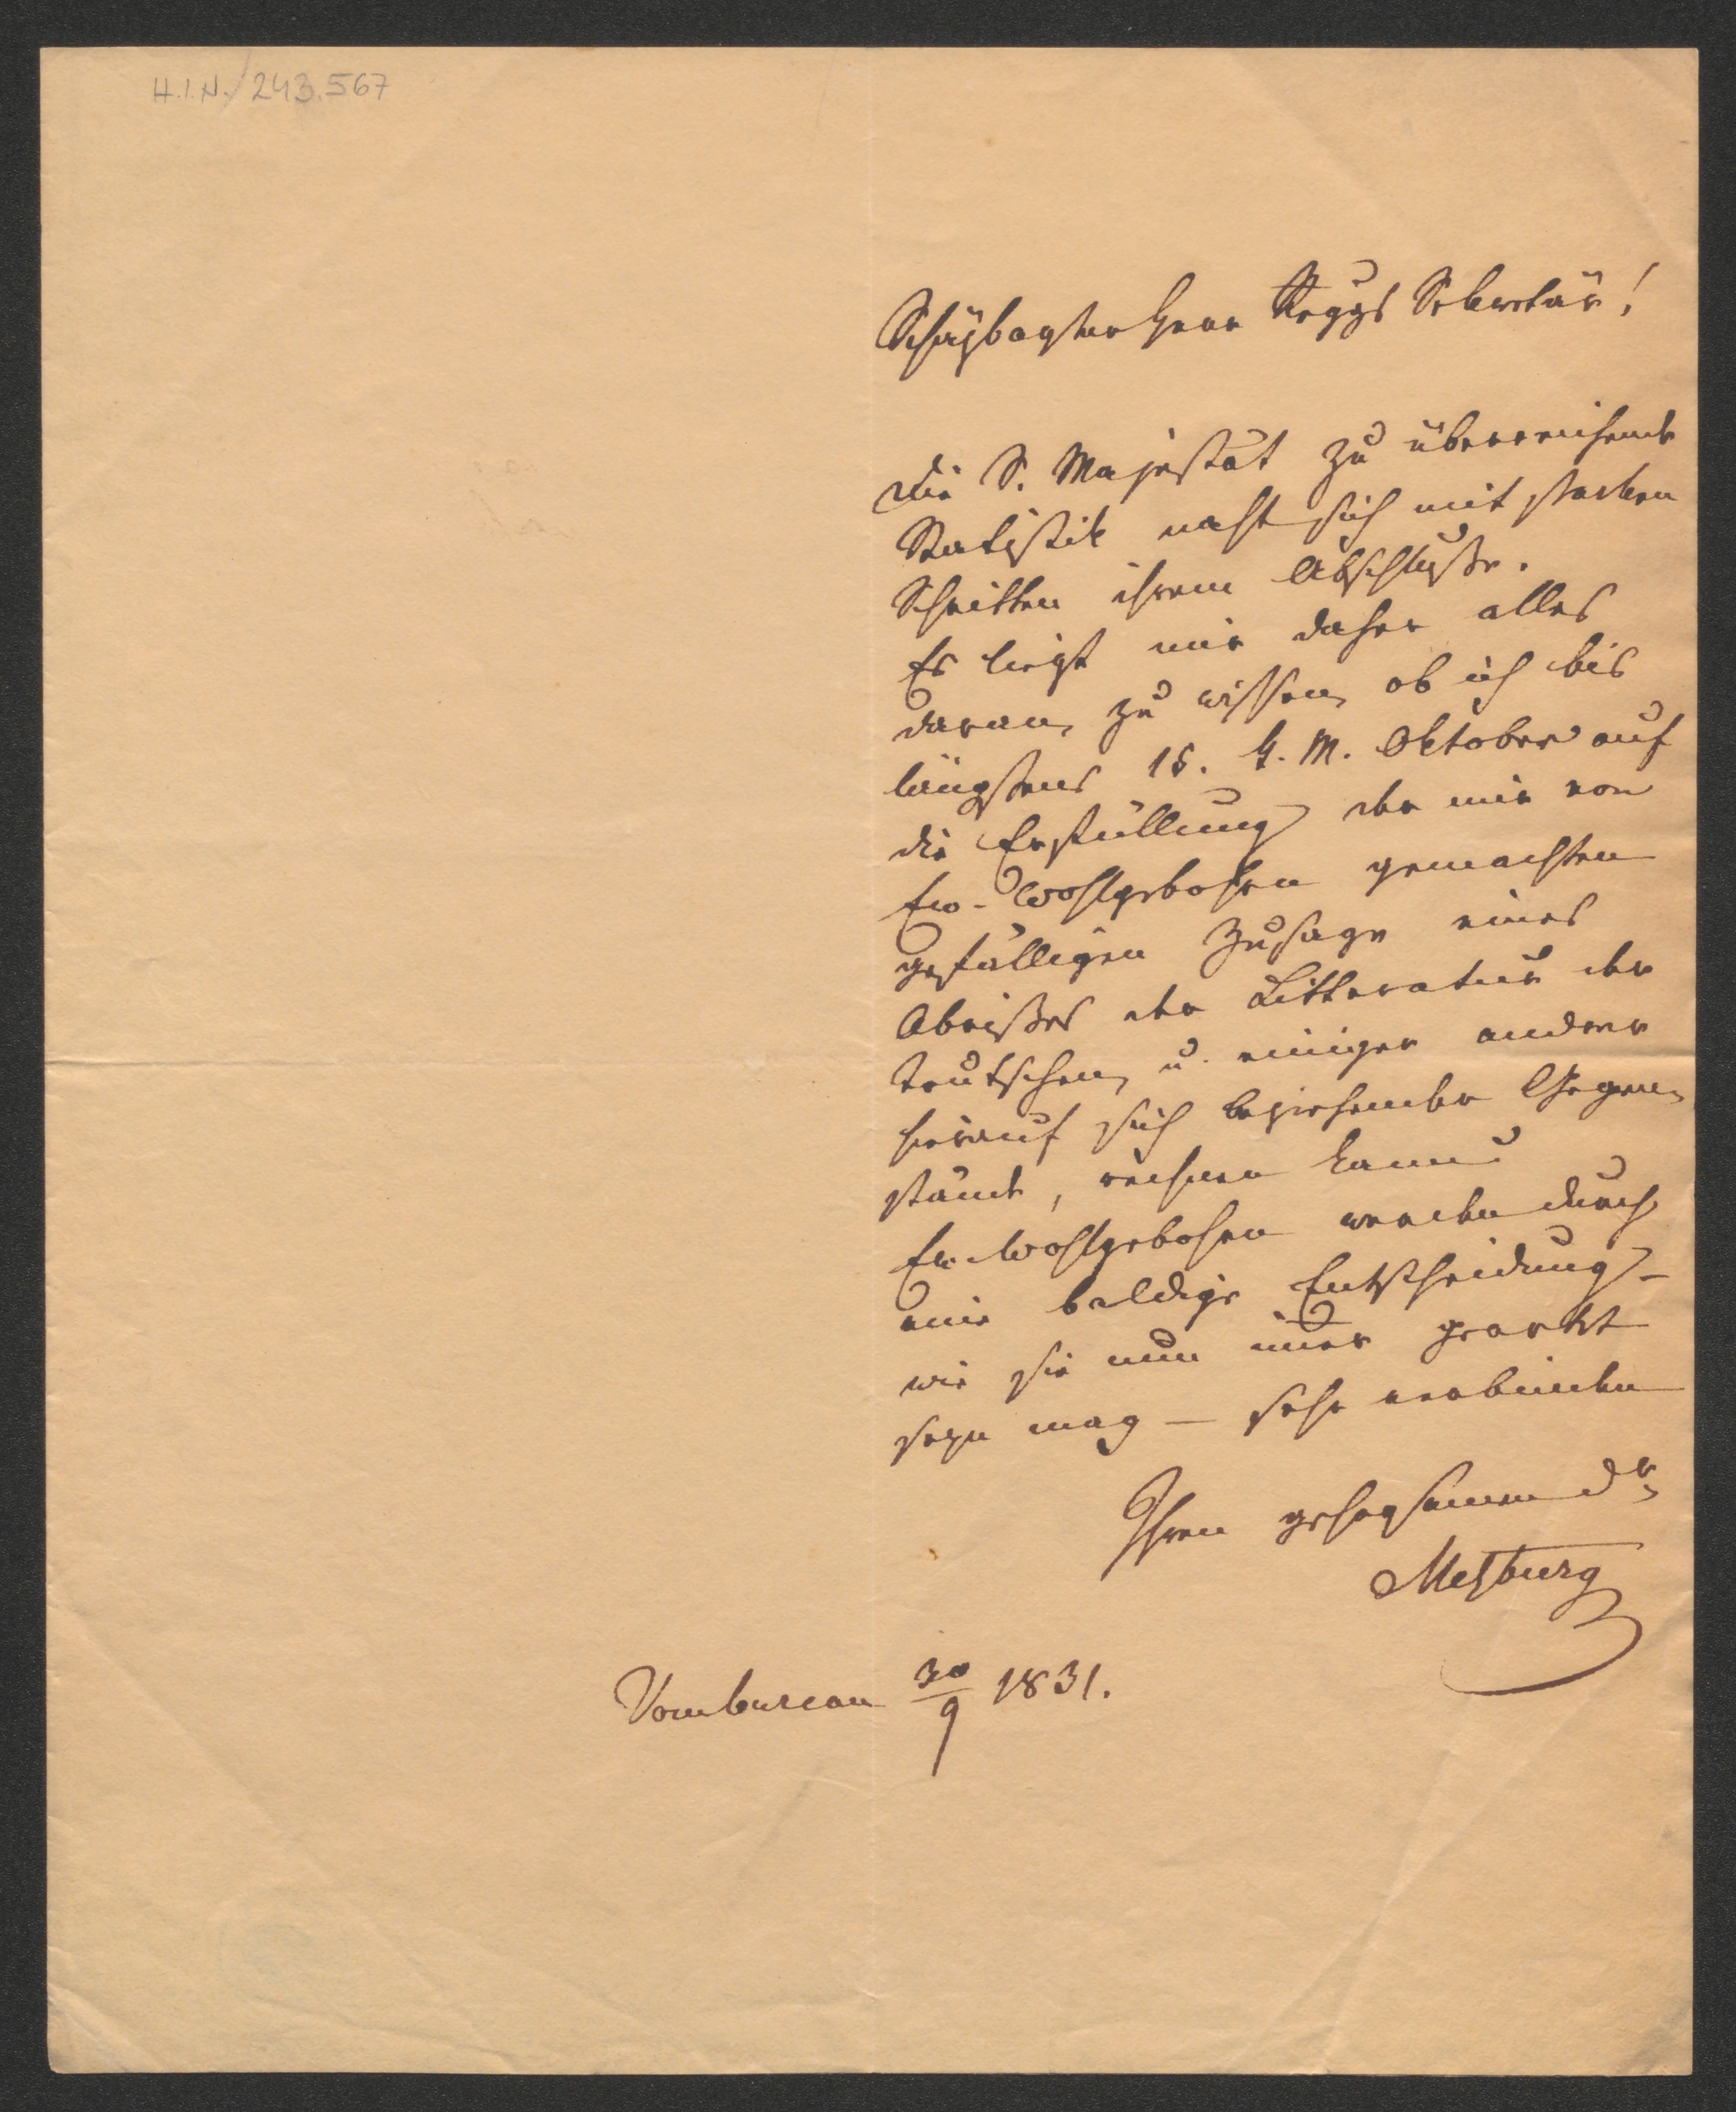 H.I.N./243.567
Schätzbarster Herr Reggs Sekretär!
Die S. Majestät zu überreichende
Statistik naht sich mit starken
Schritten ihrem Abschluße.
Es liegt mir daher alles
daran, zu wissen, ob ich bis
längstens 15. k. M. Oktober auf
die Erfüllung der mir von
Ew. Wohlgebohrn gemachten
gefälligen Zusage eines
Abrißes der Litteratur der
Teutschen, u. einiger anderer
hierauf sich beziehender Gegen-
stände, rechnen kann.
Ew. Wohlgebohrn werden durch
eine baldige Entscheidung –
wie sie nun immer geartet
seyn mag – sehr verbinden
Ihren gehorsamen Dr
Metzburg
Vom bureau 30/9 1831.